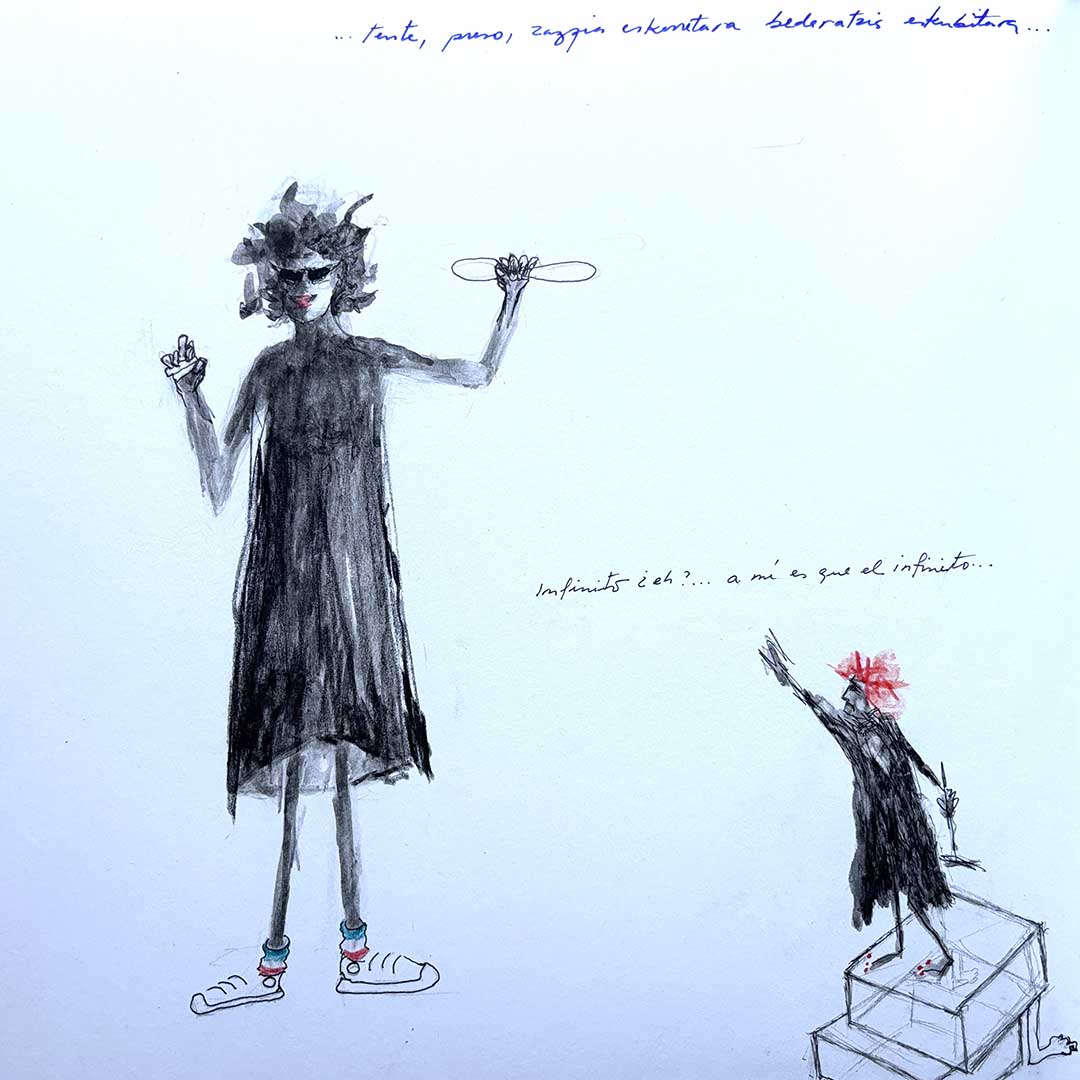 ... tente, preso, zazpia eskerretara bederatzia eskubitara...
Infinito ¿eh?... a mí es que el infinito...